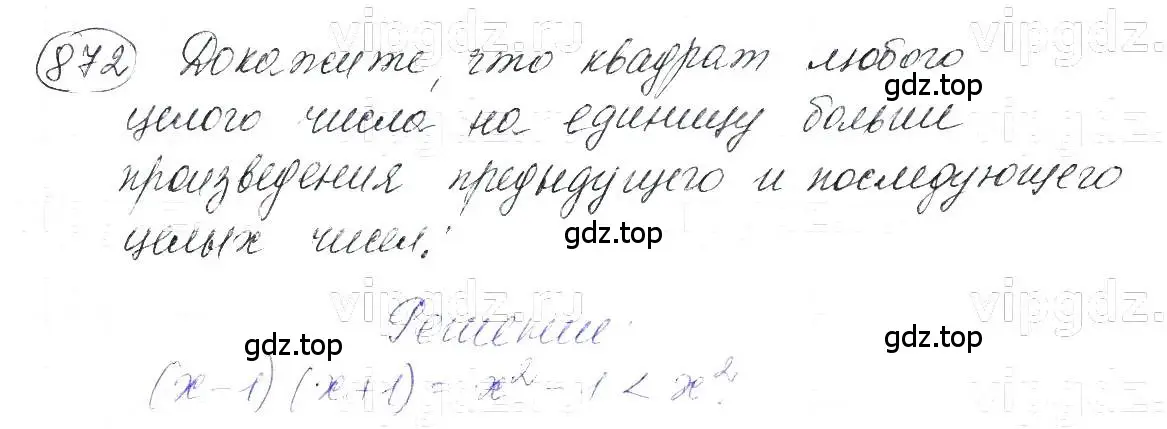 872 Докажите, что квадрат любого
целого числа на единицу больше
произведения предыдущего и последующего
целых чисел.
Решение:
(x-1)(x+1) = x² - 1 < x².
vipgdz.ru
gdz.top
gdz.top
gdz.top
vipgdz.ru
vipgdz.
gdz.top
gdz.top